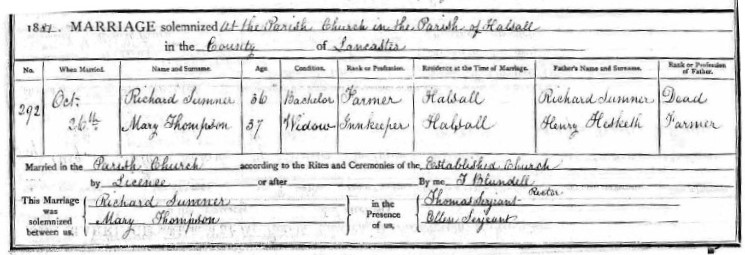 1881. MARRIAGE solemnized at the Parish Church in the Parish of Halsall
in the County of Lancaster
No. When Married. Name and Surname. Age. Condition. Rank or Profession. Residence at the Time of Marriage. Father's Name and Surname. Rank or Profession of Father.
292 Oct. Richard Sumner 36 Bachelor Farmer Halsall Richard Sumner Dead
26th Mary Thompson 37 Widow Innkeeper Halsall Henry Hesketh Farmer
Married in the Parish Church according to the Rites and Ceremonies of the Established Church
by License or after By me T Blundell
Rector
This Marriage was solemnized between us, Richard Sumner in the Presence of us, Thomas Serjeant
Mary Thompson Ellen Serjeant